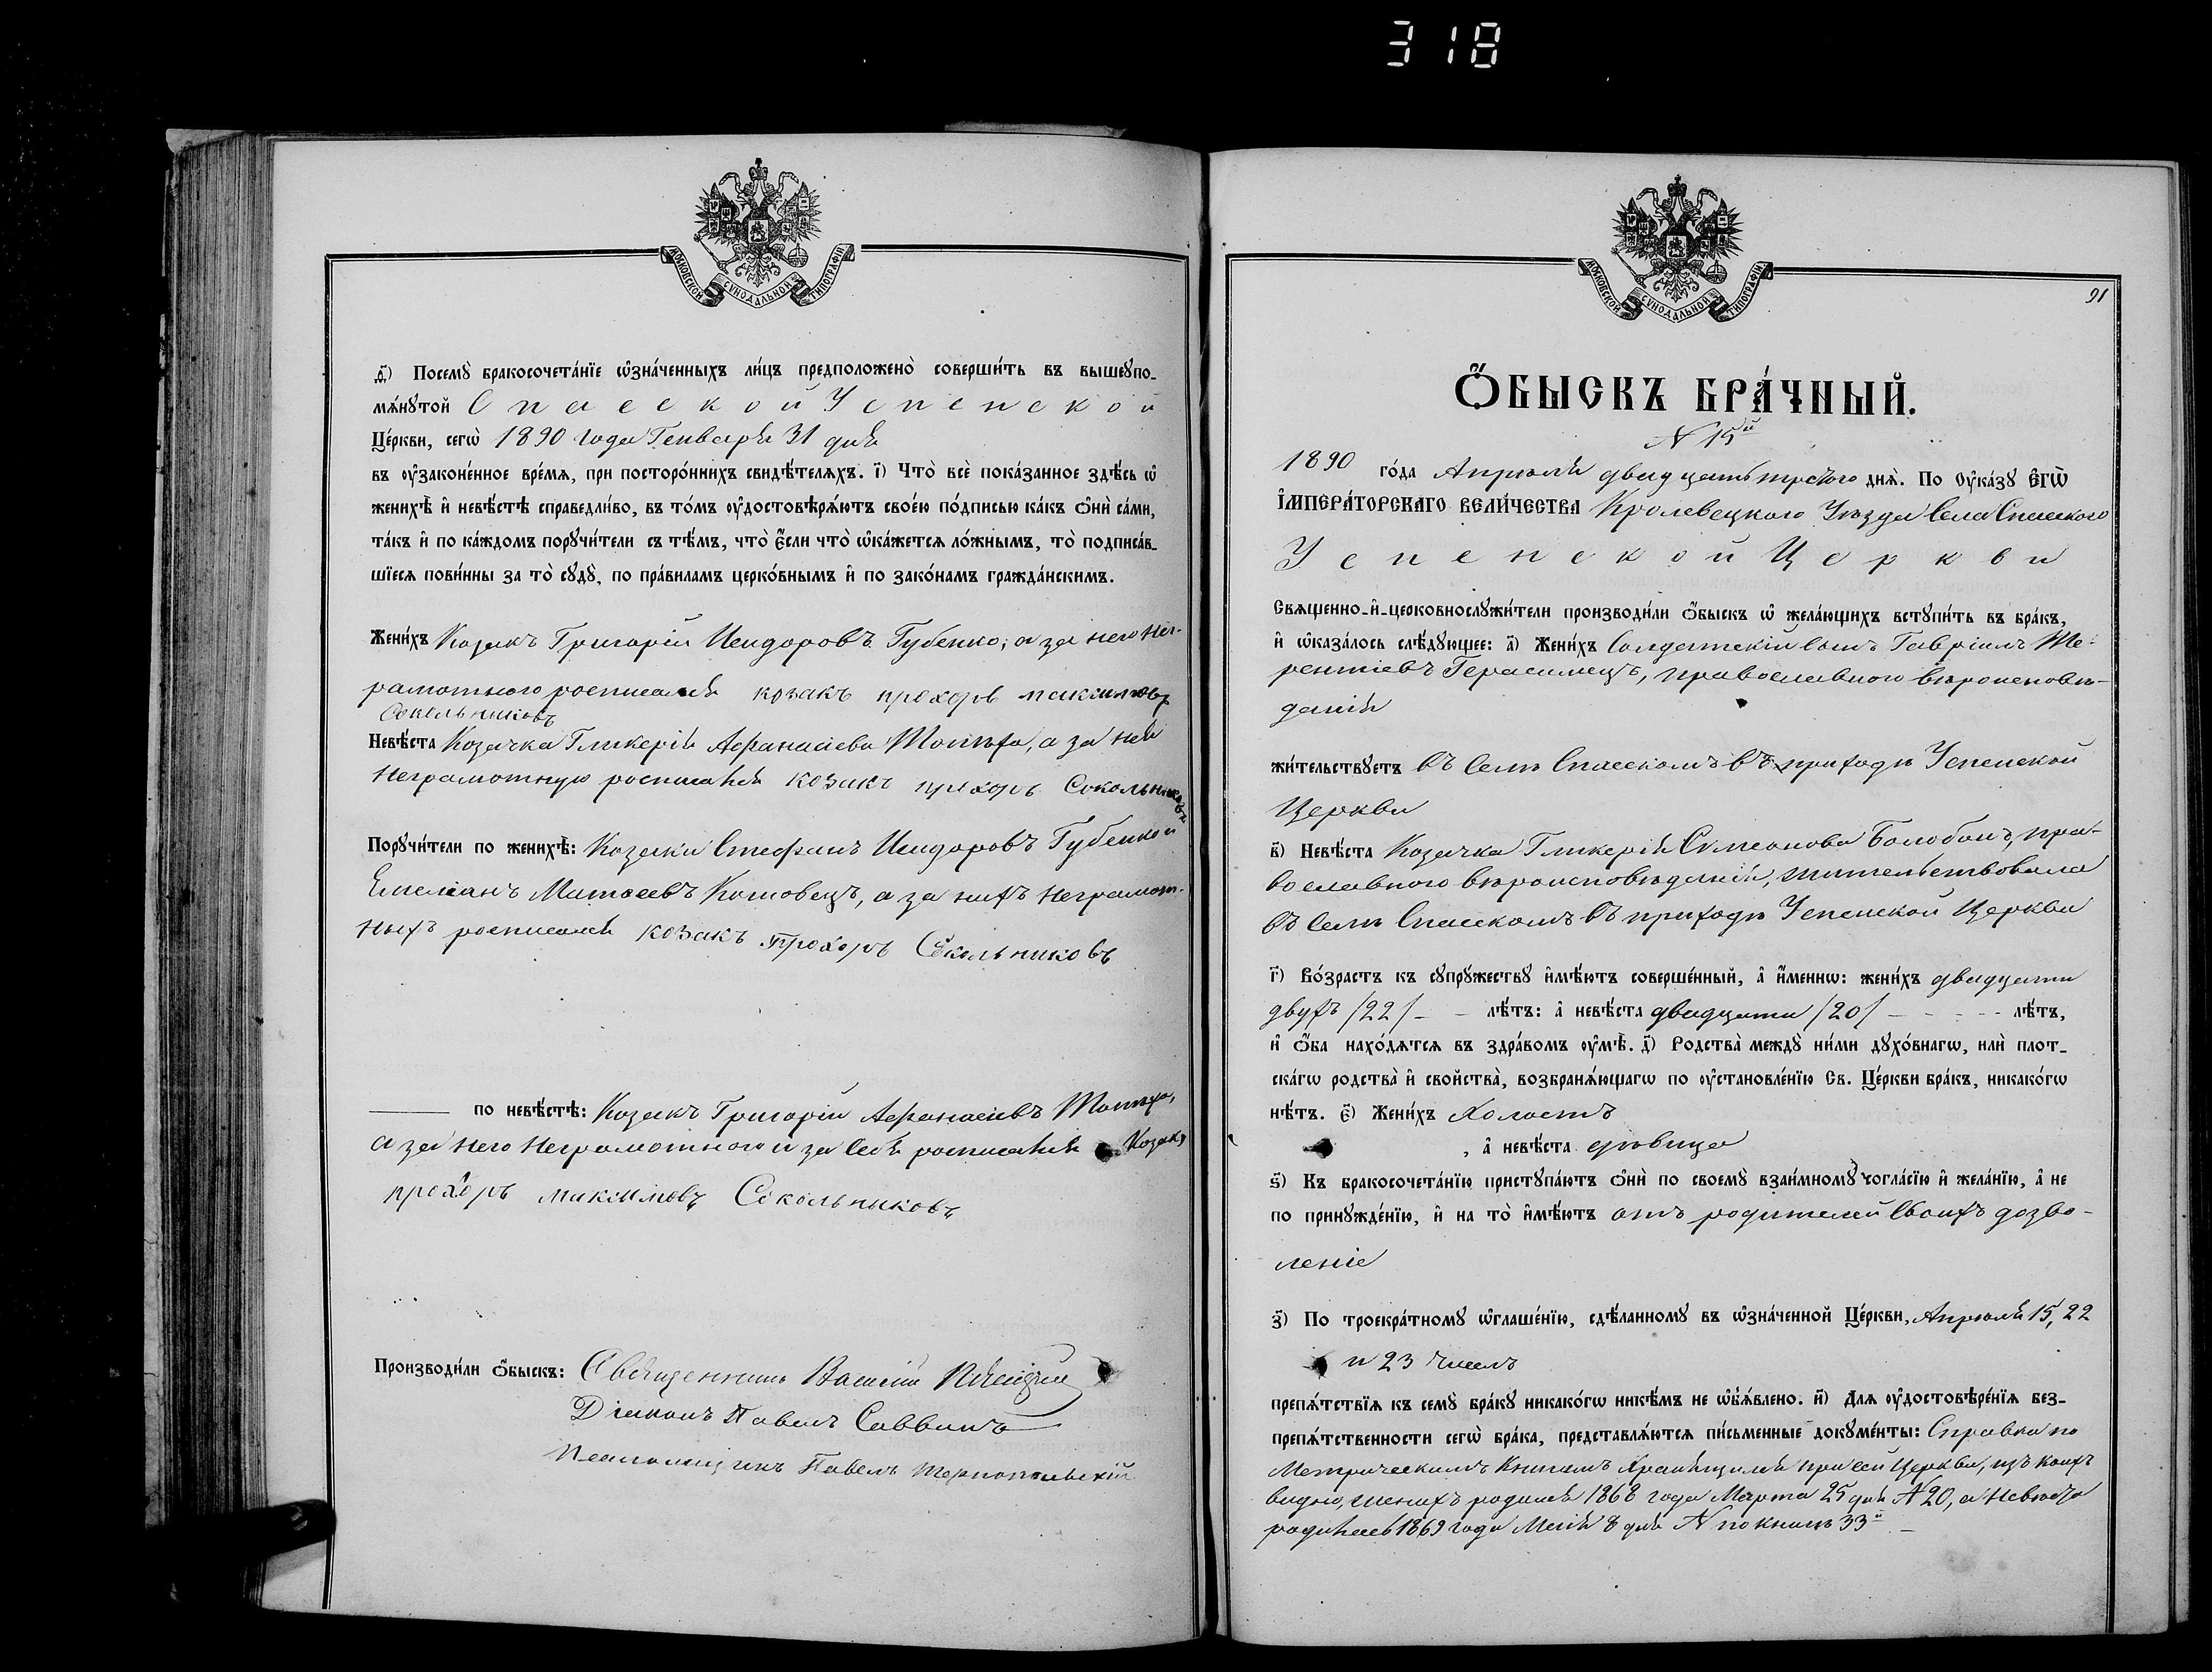 318
МОСКОВСКОЙ СѴНОДАЛЬНОЙ ТИПОГРАФІИ
ѳ҃) Посемꙋ̀ бракосочета́нїе ѡ҆зна́ченныхъ ли́цъ предположено̀ соверши́ть въ вышеꙋпо-
мѧ́нꙋтой Спасской Успенской
Це́ркви, сегѡ̀ 1890 года Генваря 31 дня
въ ᲂу҆законе́нное вре́мѧ, при посторо́ннихъ свидѣ́телѧхъ. і҃) Что̀ всѐ пока́занное здѣ́сь ѡ҆
женихѣ̀ и҆ невѣ́стѣ справедли́во, въ то́мъ ᲂу҆достовѣрѧ́ютъ свое́ю по́дписью ка́къ ѻ҆нѝ са́ми,
та́къ и҆ по ка́ждомъ порꙋчи́тели съ тѣ́мъ, что̀ є҆́сли что̀ ѡ҆ка́жетсѧ ло́жнымъ, то̀ подписа́в-
шїесѧ пови́нны за то̀ сꙋдꙋ̀, по пра́виламъ церко́внымъ и҆ по зако́намъ гражда́нскимъ.
Жени́хъ Козакъ Григорій Исидоровъ Губенко; а за него Нег-
рамотного росписался козакъ прохоръ максимовъ
Сокольниковъ
Невѣ́ста Козачка Гликерія Афанасіева Шопѣра, а за нея
Неграмотную росписался козакъ прохоръ Сокольниковъ
Порꙋчи́тели по женихѣ̀: Козаки Стефанъ Исидоровъ Губенко и
Емеліанъ Матѳеевъ Котовецъ, а за нихъ Неграмот-
ныхъ росписался козакъ Прохоръ Сокольниковъ
по невѣ́стѣ: Козакъ Григорій Афанасіевъ
а за него Неграмотного и за себя росписался Козакъ
прохоръ максимовъ Сокольниковъ
Производи́ли ѻ҆́быскъ: Священникъ Василій
Діаконъ Павелъ Саввинъ
Псаломщикъ Павелъ Тернопольскій
91
Ѻ҆́БЫСКЪ БРА́ЧНЫЙ.
N 15й
1890 го́да Апрѣля двадцать третого днѧ̀. По Оу҆ка́зꙋ Є҆ГѠ̀
И҆МПЕРА́ТОРСКАГО ВЕЛИ́ЧЕСТВА Кролевецкого Уѣзда Села Спасского
Успенской Церкви
Свѧщенно-и҆-церковнослꙋжи́тели производи́ли ѻ҆́быскъ ѡ҆ жела́ющихъ встꙋпи́ть въ бра́къ,
и҆ ѡ҆каза́лось слѣ́дꙋющее: а҃) Жени́хъ Солдатскій сынъ Гавріилъ Те-
рентіевъ Герасимецъ, православного вѣроисповѣ-
данія
жи́тельствꙋетъ въ Селѣ Спасскомъ въ приходѣ Успенской
Церкви
в҃) Невѣ́ста Козачка Гликерія Симеонова Болобанъ, пра-
вославного вѣроисповѣданія, жительствовала
въ Селѣ Спасскомъ въ приходѣ Успенской Церкви
г҃) Во́зрастъ къ сꙋпрꙋ́жествꙋ и҆мѣ́ютъ соверше́нный, а҆ и҆́меннѡ: жени́хъ двадцати
двухъ /22/ - - лѣ́тъ: а҆ невѣ́ста двадцати /20/ - - - - - лѣ́тъ,
и҆ ѻ҆́ба нахо́дѧтсѧ въ здра́вомъ ᲂу҆мѣ̀. д҃) Родства̀ междꙋ̀ ни́ми дꙋхо́внагѡ, илѝ плот-
ска́гѡ родства̀ и҆ свойства̀, возбранѧ́ющагѡ по ᲂу҆становле́нїю Св. Це́ркви бра́къ, никако́гѡ
нѣ́тъ. є҃) Жени́хъ Холостъ
, а҆ невѣ́ста дѣвица
ѕ҃) Къ бракосочета́нїю пристꙋпа́ютъ ѻ҆нѝ по своемꙋ̀ взаи́мномꙋ согла́сїю и҆ жела́нїю, а҆ не
по принꙋжде́нїю, и҆ на то̀ и҆мѣ́ютъ отъ родителей своихъ дозво-
леніе
з҃) По троекра́тномꙋ ѡ҆глаше́нїю, сдѣ́ланномꙋ въ ѡ҆зна́ченной Це́ркви, Апрѣля 15, 22
и 23 числъ
препѧ́тствїѧ къ семꙋ̀ бра́кꙋ никако́гѡ никѣ́мъ не ѡ҆б̾ѧ́влено. и҃) Длѧ ᲂу҆достовѣре́нїѧ без-
препѧ́тственности сегѡ̀ бра́ка, представлѧ́ютсѧ пи́сьменные докꙋме́нты: Справка по
Метрическимъ Книгамъ хранящимся при сей Церкви, изъ коихъ
видно, женихъ родился 1868 года Марта 25 дня N 20, а Невѣста
родилась 1869 года Мая 8 дня N по книгѣ 33й